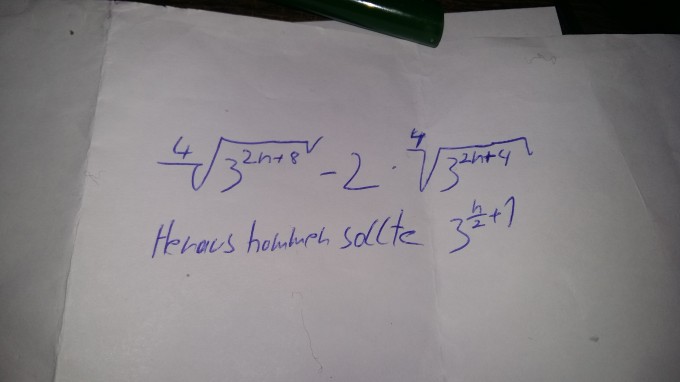 ⁴√3^(2n+8) - 2 · ⁴√3^(2n+4)
Heraus kommen sollte 3^(n/2 + 1)